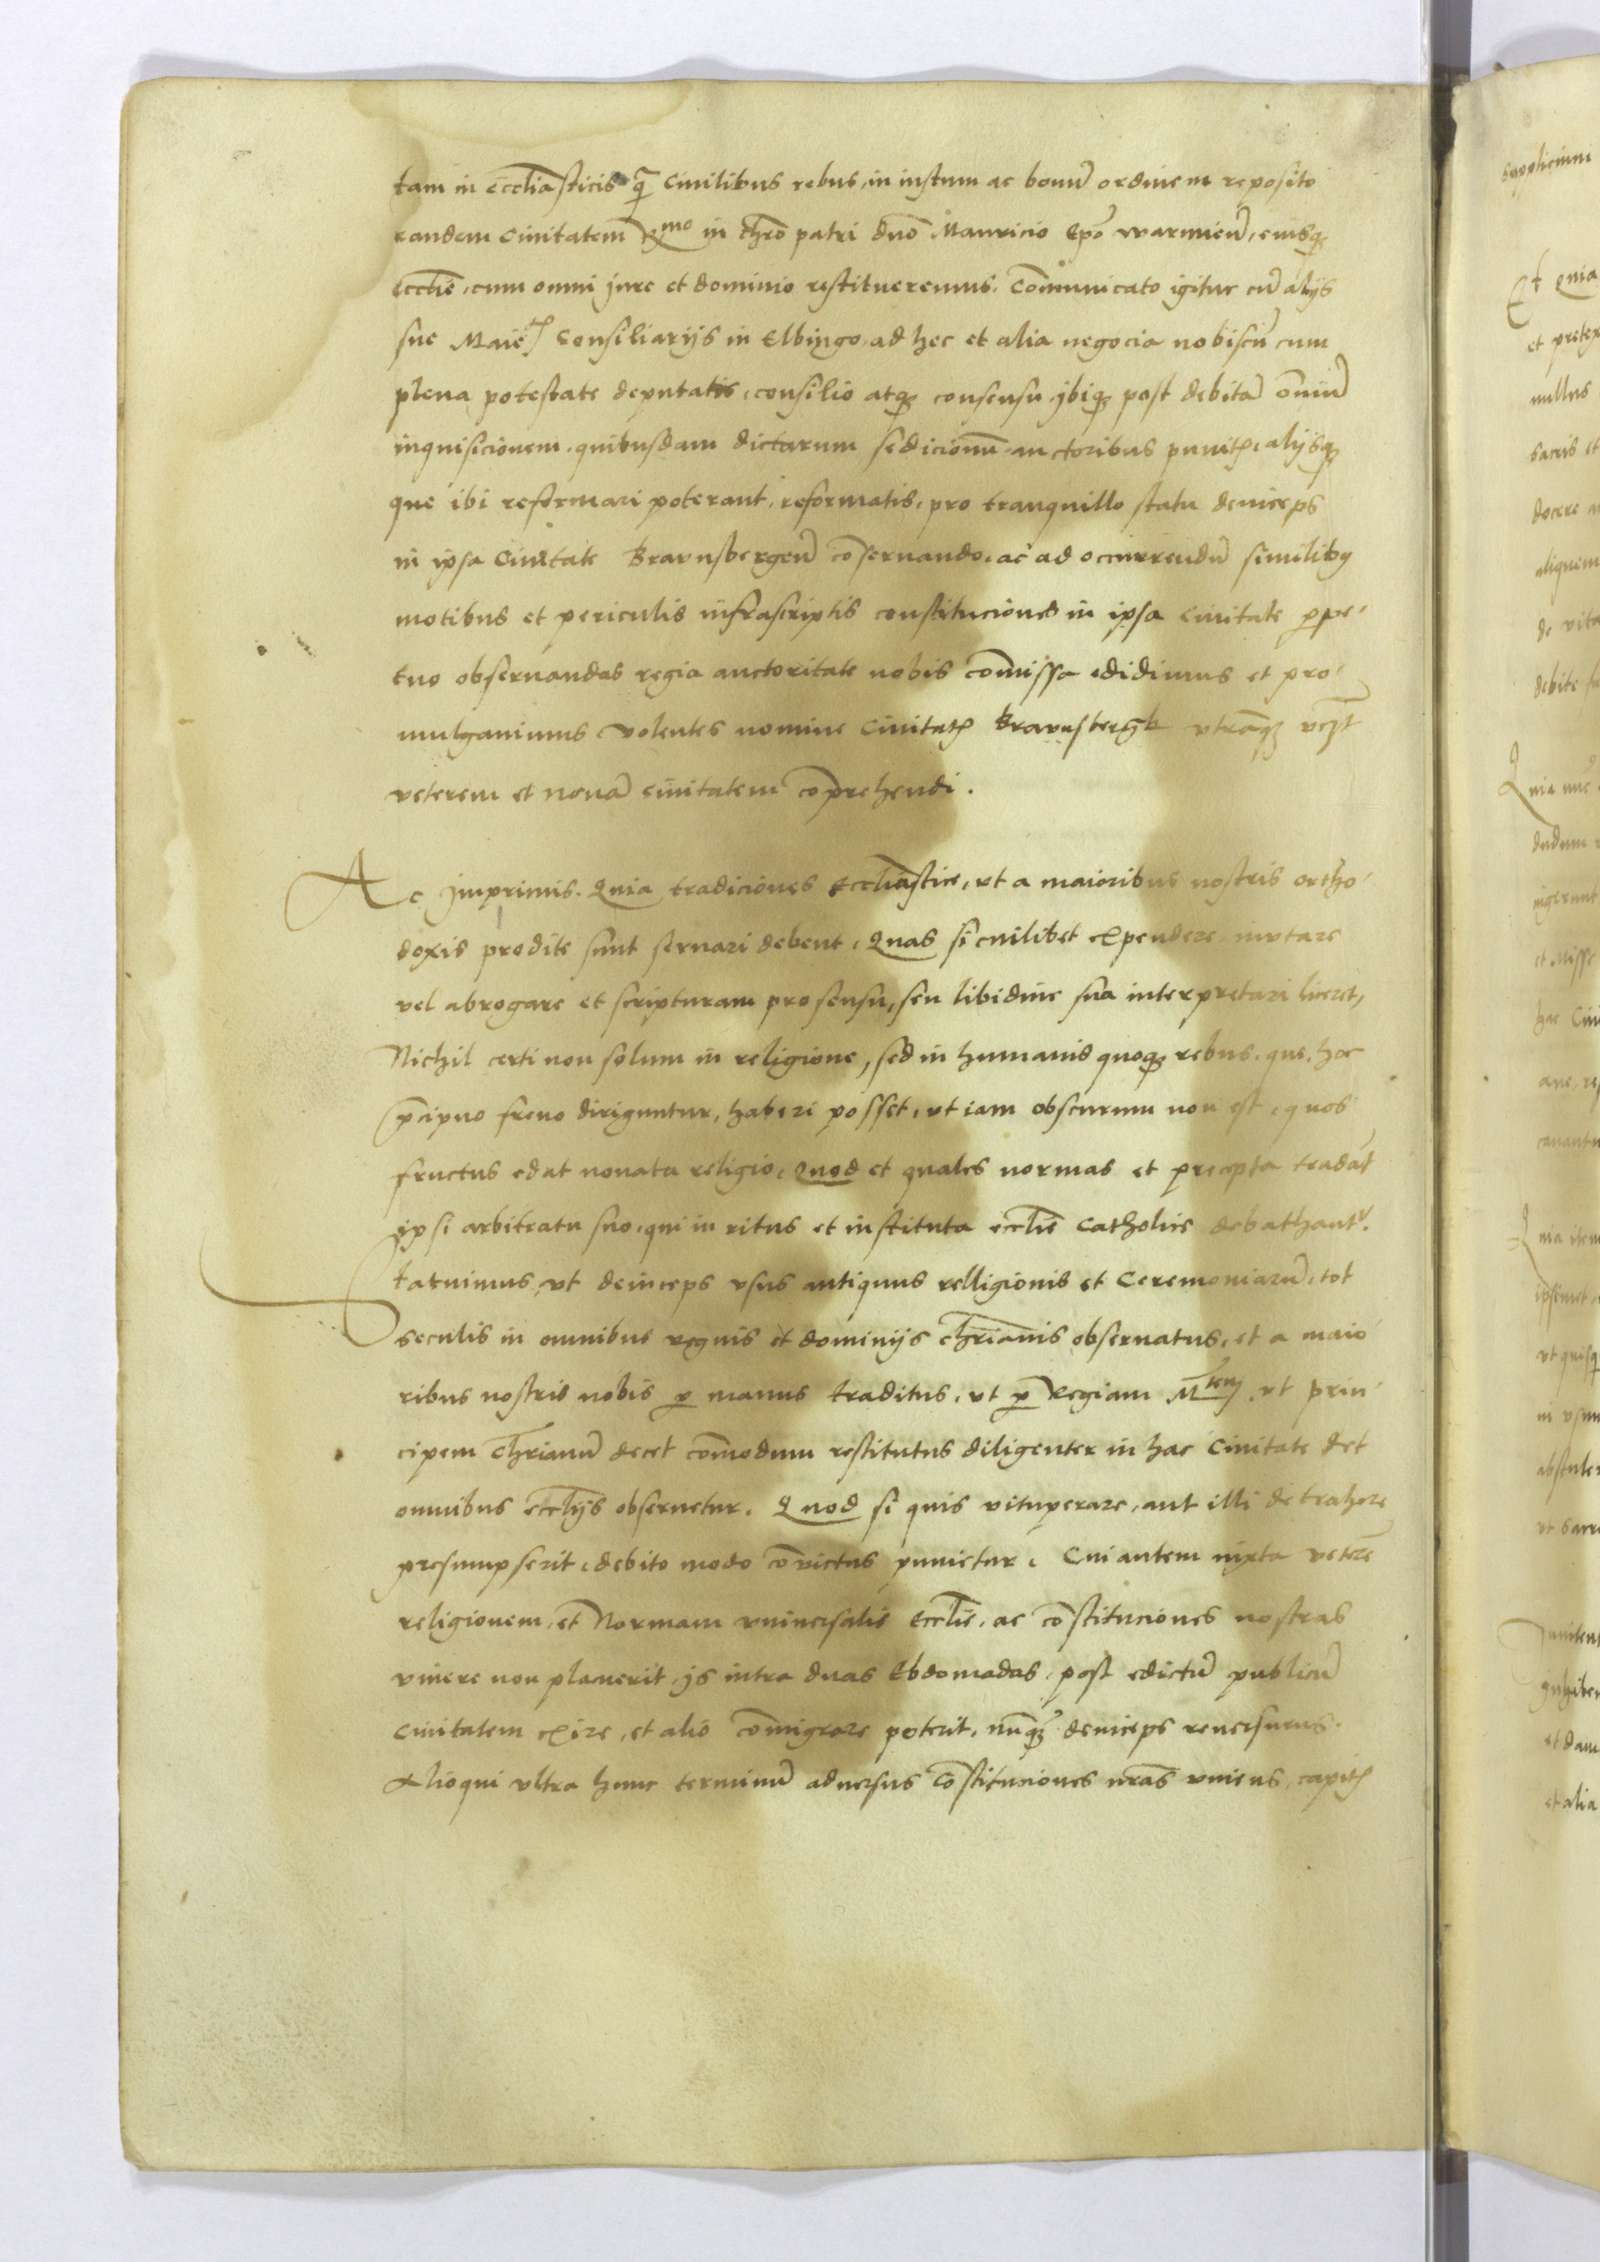 tam in eccl̄iasticis q̄ Ciuilibus rebus, in iustum ac bonū ordinem reposito
eandem Ciuitatem R^mo in chr̄o patri dn̄o Mauricio Ep̄o warmien̄, eiusq₃
Eccl̄ie, cum omni jure et dominio restitueremus. Com̄unicato igitur cū alijs
sue Maie^t Consiliarijs in Elbingo ad hec et alia negocia nobiscū cum
plena potestate deputatis, consilio atq₃ consensu ibiq₃ post debitā om̄iū
inquisicionem, quibusdam dictarum sedicionū auctoribus punitꝭ, alijsq₃
que ibi reformari poterant, reformatis, pro tranquillo statu deinceps
in ipsa Ciuitate Braunsbergen̄ cōseruando, ac ad occurrendū similibꝰ
motibus et periculis infrascriptis constituciones in ipsa Ciuitate ꝑpe-
tuo obseruandas regia auctoritate nobis com̄issa edidimus et pro-
mulgauimus volentes nomine Ciuitatꝭ Braunsberḡ vtramq₃ vcꝫt
veterem et nouā ciuitatem cōprehendi.
Ac Jmprimis. Quia tradiciones Eccl̄iastice, vt a maioribus nostris ortho-
doxis prodite sunt seruari debent, Quas si cuilibet expendere, mutare
vel abrogare et scripturam pro sensu, seu libidine sua interpretari liceret,
Nichil certi non solum in religione, sed in humanis quoq₃ rebus, que hoc
p̄cipuo freno diriguntur, haberi posset, vt iam obscurum non est, quos
fructus edat nouata religio, Quod et quales normas et precepta tradāt
ipsi arbitratu suo, qui in ritus et instituta eccl̄ie Catholice debachant^r.
Statuimus, vt deinceps vsus antiquus relligionis et Ceremoniarū, tot
seculis in omnibus regnis et dominijs chr̄ianis obseruatus, et a maio
ribus nostris nobis ꝑ manus traditus, vt ꝑ Regiam M^tem, vt prin
cipem Chr̄ianū decet com̄odum restitutus diligenter in hac Ciuitate det
omnibus eccl̄ijs obseruetur. Quod si quis vituperare, aut illi detrahere
presumpserit, debito modo cōuictus punietur. Cui autem iuxta veterē
religionem, et Normam vniuersalis Eccl̄ie, ac cōstituciones nostras
viuere non placuerit, is intra duas Ebdomadas, post edictū publicū
Ciuitatem exire, et alio com̄igrare poterit, nūq₃ deinceps reuersurus.
Alioqui vltra hunc terminū aduersus Cōstituciones nr̄as viuens, capitꝭ